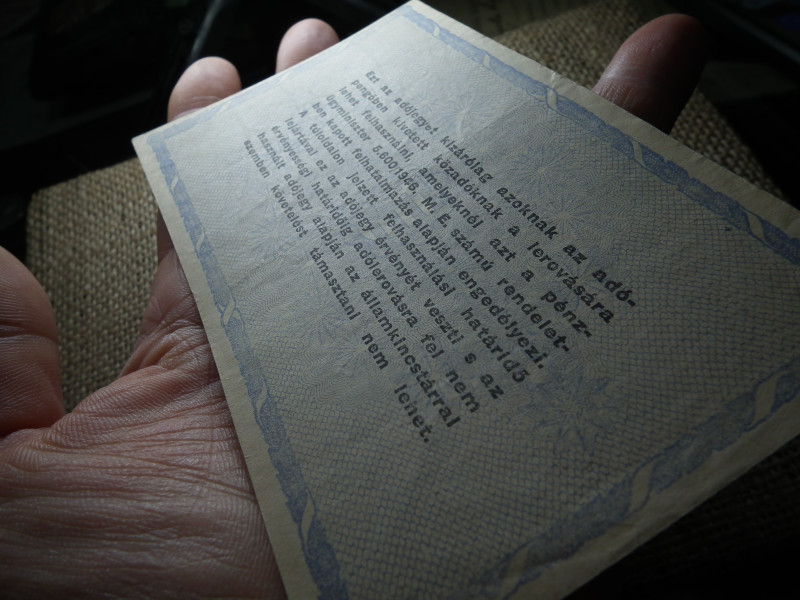 Ezt az adójegyet kizárólag azoknak az adó-
pengében kivetett közadóknak a lerovására
lehet felhasználni, amelyeknél azt a pénz-
ügyminiszter 5.600/1946. M. E. számú rendelet-
ben kapott felhatalmazás alapján engedélyezi.
A túloldalon jelzett felhasználási határidő
lejártával ez az adójegy érvényét veszti s az
érvényességi határidőig adólerovásra fel nem
használt adójegy alapján az államkincstárral
szemben követelést támasztani nem lehet.